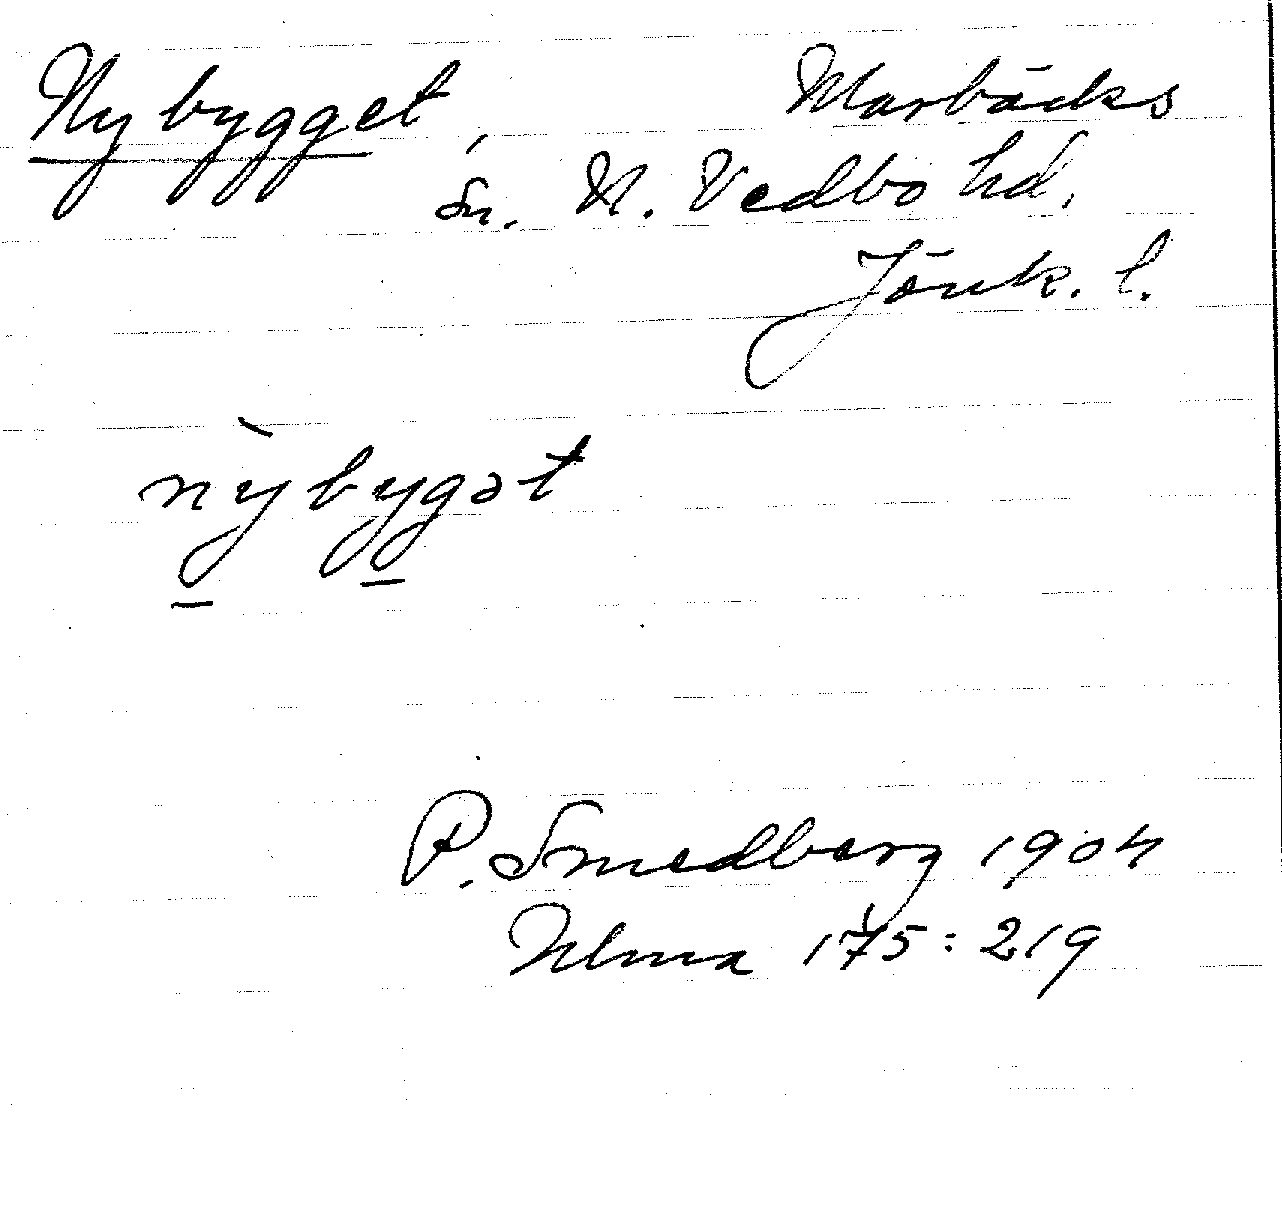 Nybygget, Marbäcks
sn. N. Vedbo hd.
Jönk. l.
nỳbygət
P. Smedberg 1904
Ulma 175:219